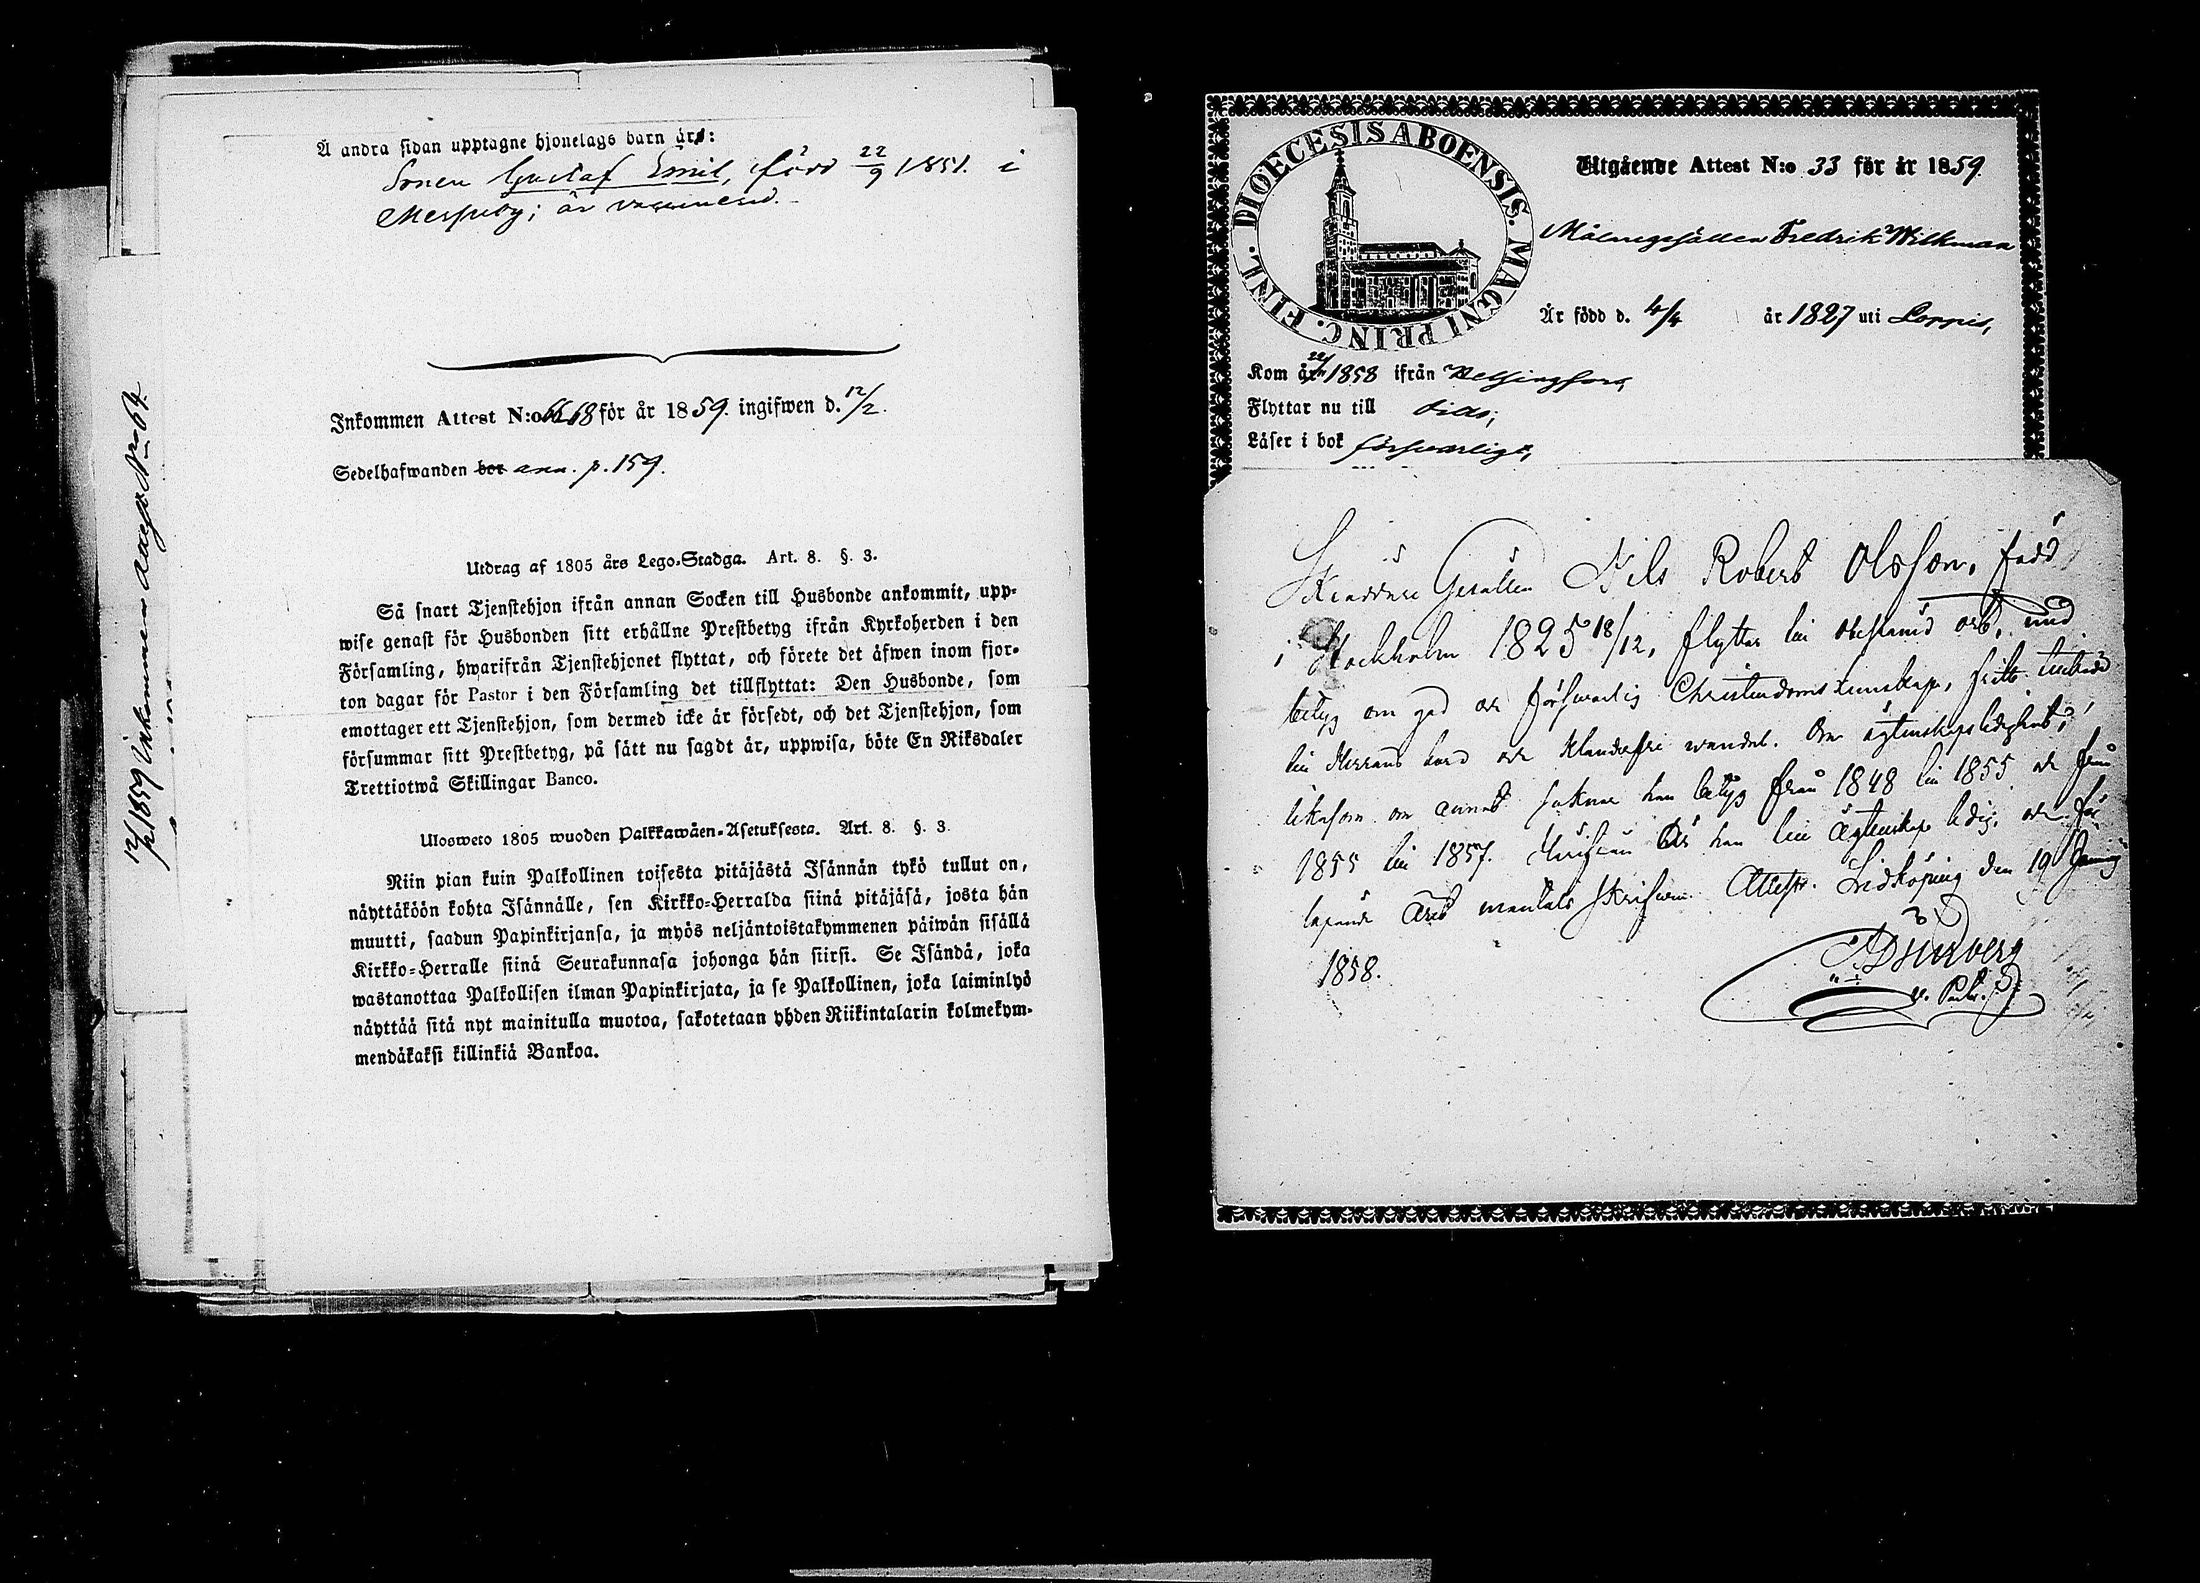 Å andra sidan upptagne hjonelags barn äro:
Sonen Gustaf Emil, född 22/9 1851. i
Messuby; är vaccinerad.
Inkommen Attest N:o 68 för år 1859. ingifwen d. 12/2.
Sedelhafwanden bor ann. p. 159.
Utdrag af 1805 års Lego-Stadga. Art. 8. §. 3.
Så snart Tjenstehjon ifrån annan Socken till Husbonde ankommit, upp-
wise genast för Husbonden sitt erhållne Prestbetyg ifrån Kyrkoherden i den
Församling, hwarifrån Tjenstehjonet flyttat, och förete det äfwen inom fjor-
ton dagar för Pastor i den Församling det tillflyttat: Den Husbonde, som
emottager ett Tjenstehjon, som dermed icke är försedt, och det Tjenstehjon, som
försummar sitt Prestbetyg, på sätt nu sagdt är, uppwisa, böte En Riksdaler
Trettiotwå Skillingar Banco.
Ulosweto 1805 wuoden Palkkawäen-Asetuksesta. Art. 8. §. 3.
Niin pian kuin Palkollinen toisesta pitäjästä Isännän tykö tullut on,
näyttäköön kohta Isännälle, sen Kirkko-Herralda siinä pitäjäsä, josta hän
muutti, saadun Papinkirjansa, ja myös neljäntoistakymmenen päiwän sisällä
Kirkko-Herralle siinä Seurakunnasa johonga hän siirsi. Se Isändä, joka
wastanottaa Palkollisen ilman Papinkirjata, ja se Palkollinen, joka laiminlyö
näyttää sitä nyt mainitulla muotoa, sakotetaan yhden Riikintalarin kolmekym-
mendäkaksi killinkiä Bankoa.
12/2 1859 Inkommen N:o 64.
DIOECESIS ABOENSIS. MAGNI PRINC. FINL.
Utgående Attest N:o 33 för år 1859
Målaregesällen Fredrik Wilkman
Är född d. 4/4 år 1827 uti Loppis,
Kom år 1858 ifrån Helsingfors,
Flyttar nu till
Läser i bok försvarligt,
Gesällen Nils Robert Olsson, född
i Stockholm 1825 18/12, flyttar till och, med
betyg om god och försvarlig Christendomskunskap, fritt tillträde
till Herrans bord och klanderfri wandel. Om ägtenskapsledighet,
liksom om annat saknar han betyg från 1848 till 1855 och från
1855 till 1857. Är han till Ägtenskap ledig, och för
löpande året mantals skrifven. Attest. Lidköping den 19 Januarij
1858.
v. Past.